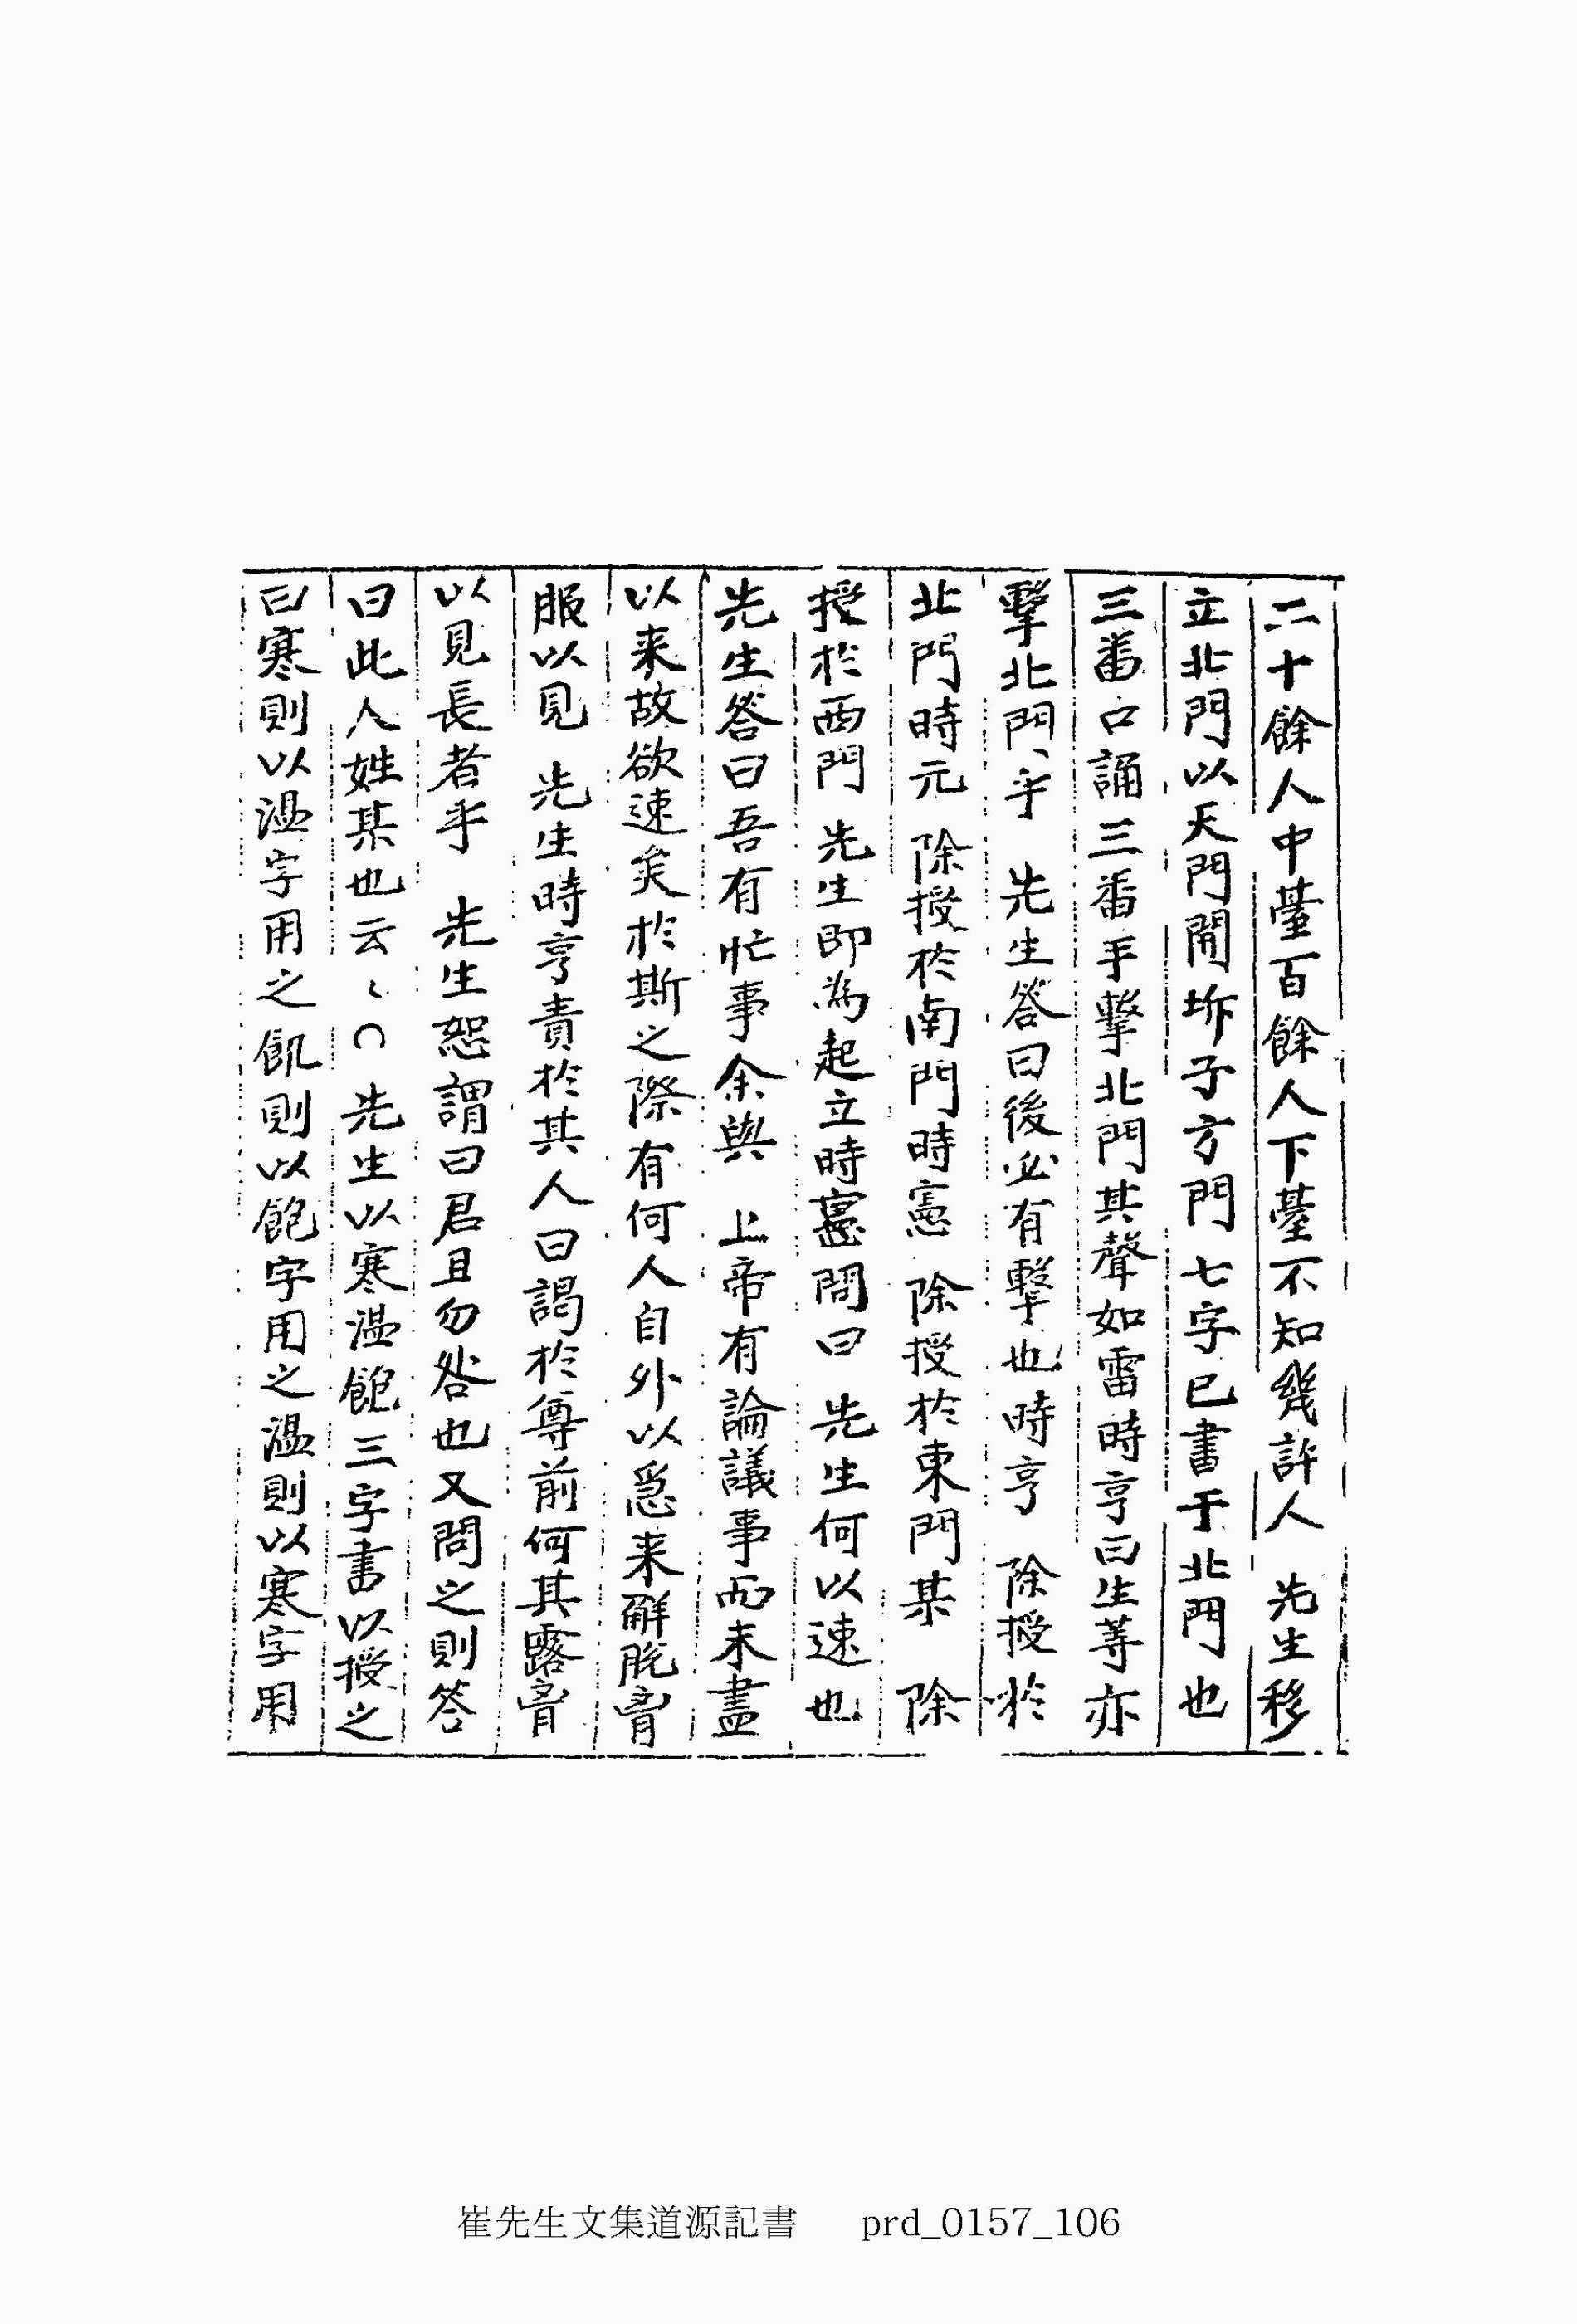 二十餘人中䑓百餘人下䑓不知幾許人 先生移
立北門以天門開坼子方門七字已書于北門也
三番口誦三番手擊北門其聲如雷時亨曰生等亦
擊北門、乎 先生答曰後必有擊也時亨 除授於
北門時元 除授於南門時憲 除授於東門某 除
授於西門 先生卽為起立時憲問曰 先生何以速也
先生答曰吾有忙事余與 上帝有論議事而未盡
以来故欲速矣於斯之際有何人自外以爲来解脫
服以見 先生時亨責於其人曰謁於尊前何其露
以見長者乎 先生恕謂曰君且勿咎也又問之則答
曰此人姓某也云〻〇先生以寒溫飽三字書以授之
曰寒則以溫字用之飢則以飽字用之溫則以寒字用
崔先生文集道源記書 prd_0157_106